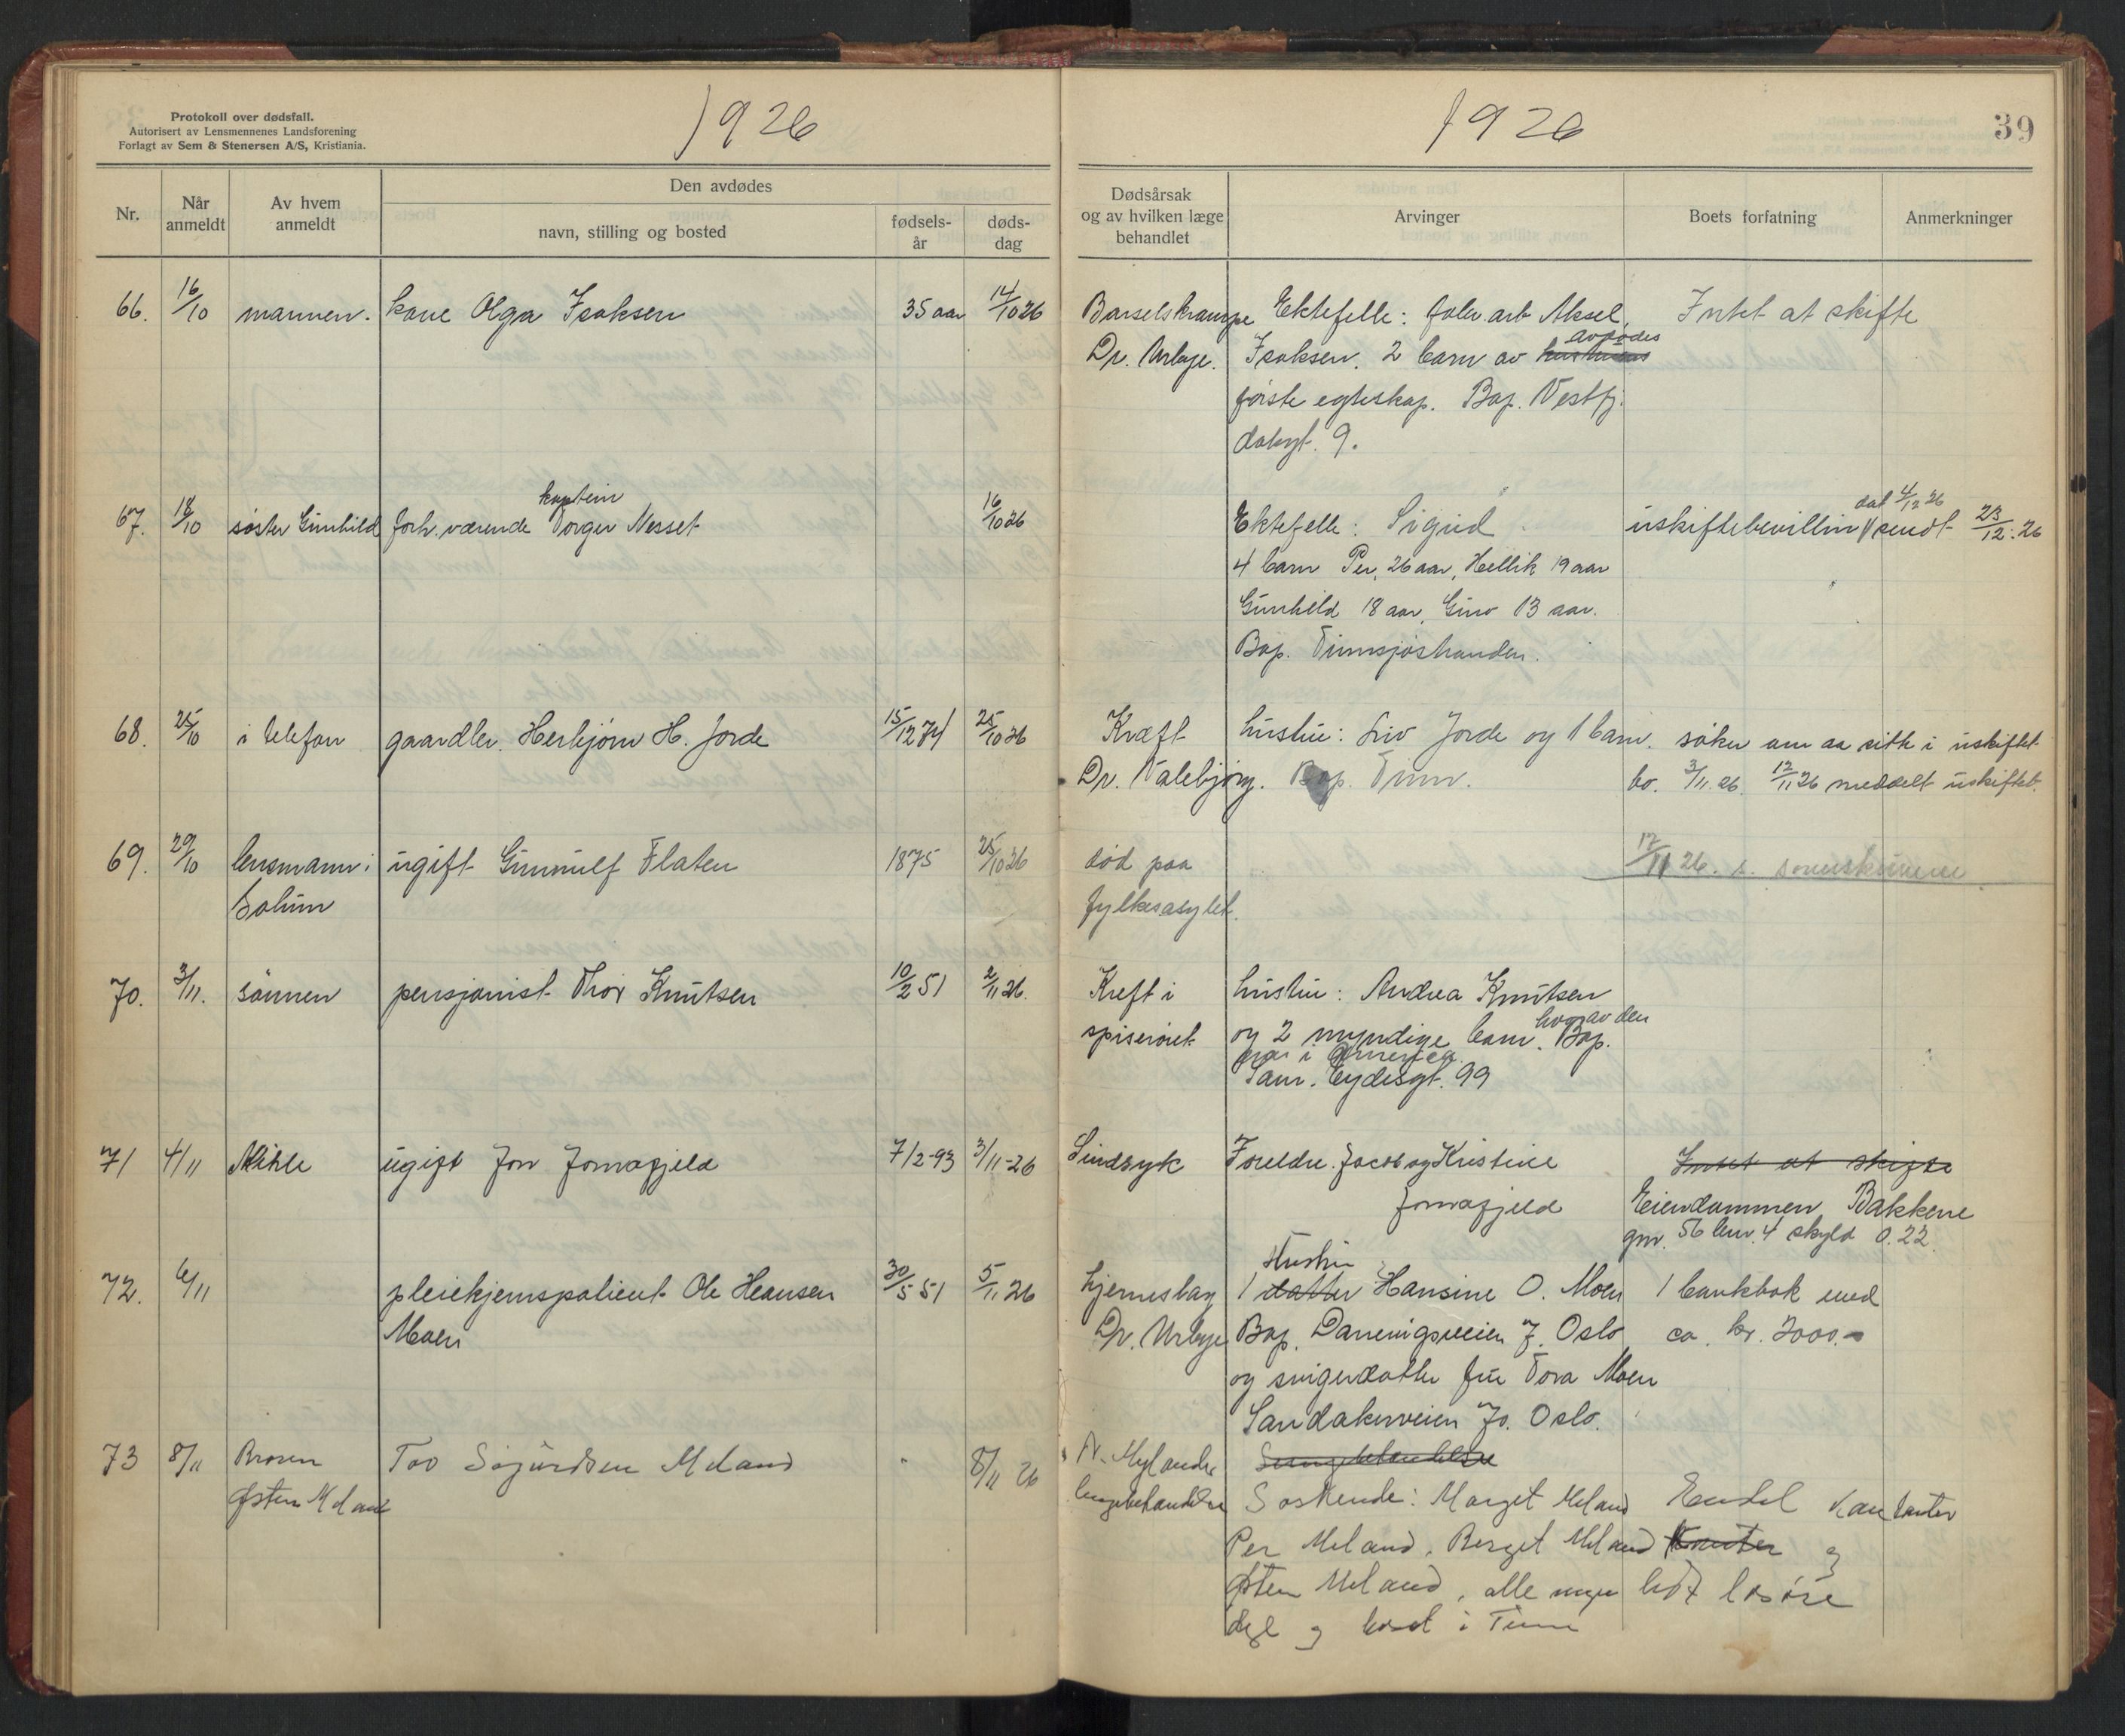 Protokoll over dødsfall.
Autorisert av Lensmennenes Landsforening
Forlagt av Sem & Stenersen A/S, Kristiania.
1926
Nr.
Når anmeldt
Av hvem anmeldt
Den avdødes
navn, stilling og bosted
fødsels-år
døds-dag
66. 16/10 mannen. kone Olga Isaksen 35 aar 14/10 26
67. 18/10 søster Gunhild forh. værende kaptein Torger Nesset 16/10 26
68. 25/10 i telefon gaardbr. Herbjørn H. Jorde 15/12 74 25/10 26
69. 29/10 lensmann i ugift Gunnulf Flaten 1875 25/10 26
Solum
70. 3/11. sønnen pensjonist Thor Knutsen 10/2 51 2/11 26.
71 4/11 Mihle ugift Jon Jonrafjeld 7/2-93 3/11-26
72. 6/11 pleiehjemspatient Ole Hansen 30/5 51 5/11 26
Moen
73 8/11 Broren Tov Sigurdsen Meland 8/11 26
Østen Meland
1926
39
Dødsårsak
og av hvilken læge
behandlet
Arvinger
Boets forfatning
Anmerkninger
Barselskrampe Ektefelle: fabr. arb Aksel Intet at skifte
Dr. Urbye. Isaksen. 2 barn av avdødes
første egteskap. Bop. Vestfj.
dalsgt. 9.
Ektefelle: Sigrid uskiftebevilling dat 4/12 26 sendt 23/12. 26
4 barn Per, 26 aar, Hellik 19 aar
Gunhild 18 aar, Guro 13 aar.
Bop. Tinnsjøstranden.
Kræft hustru: Liv Jorde og 1 barn. søker om aa sitte i uskiftet
Dr. Dalebjørg. Bop. Tinn. bo. 3/11. 26. 12/11 26 meddelt uskiftet.
død paa 12/11 26. s.
fylkesasylet.
Kreft i hustru: Andrea Knutsen
spiserøret og 2 myndige barn. hvorav den Bop.
ene i Amerika.
Sam. Eydesgt. 99
Sindsyk Foreldre. Jacob og Kristine Intet at skifte
Jonrafjeld Eiendommen Bakkene
gnr. 56 bnr. 4 skyld 0.22.
Hustru
hjerneslag 1 datter Hansine O. Moen 1 bankbok med
Dr. Urbye Bop. Darreveien 7. Oslo ca. kr. 2000.-
og svigerdatter fru Tora Moen
Sandakerveien 70. Oslo.
Søskende: Marget Meland Endel kontanter
Per Meland, Berget Meland Konter og
Østen Meland, alle myn litt løsøre
dige og bosat i Tinn